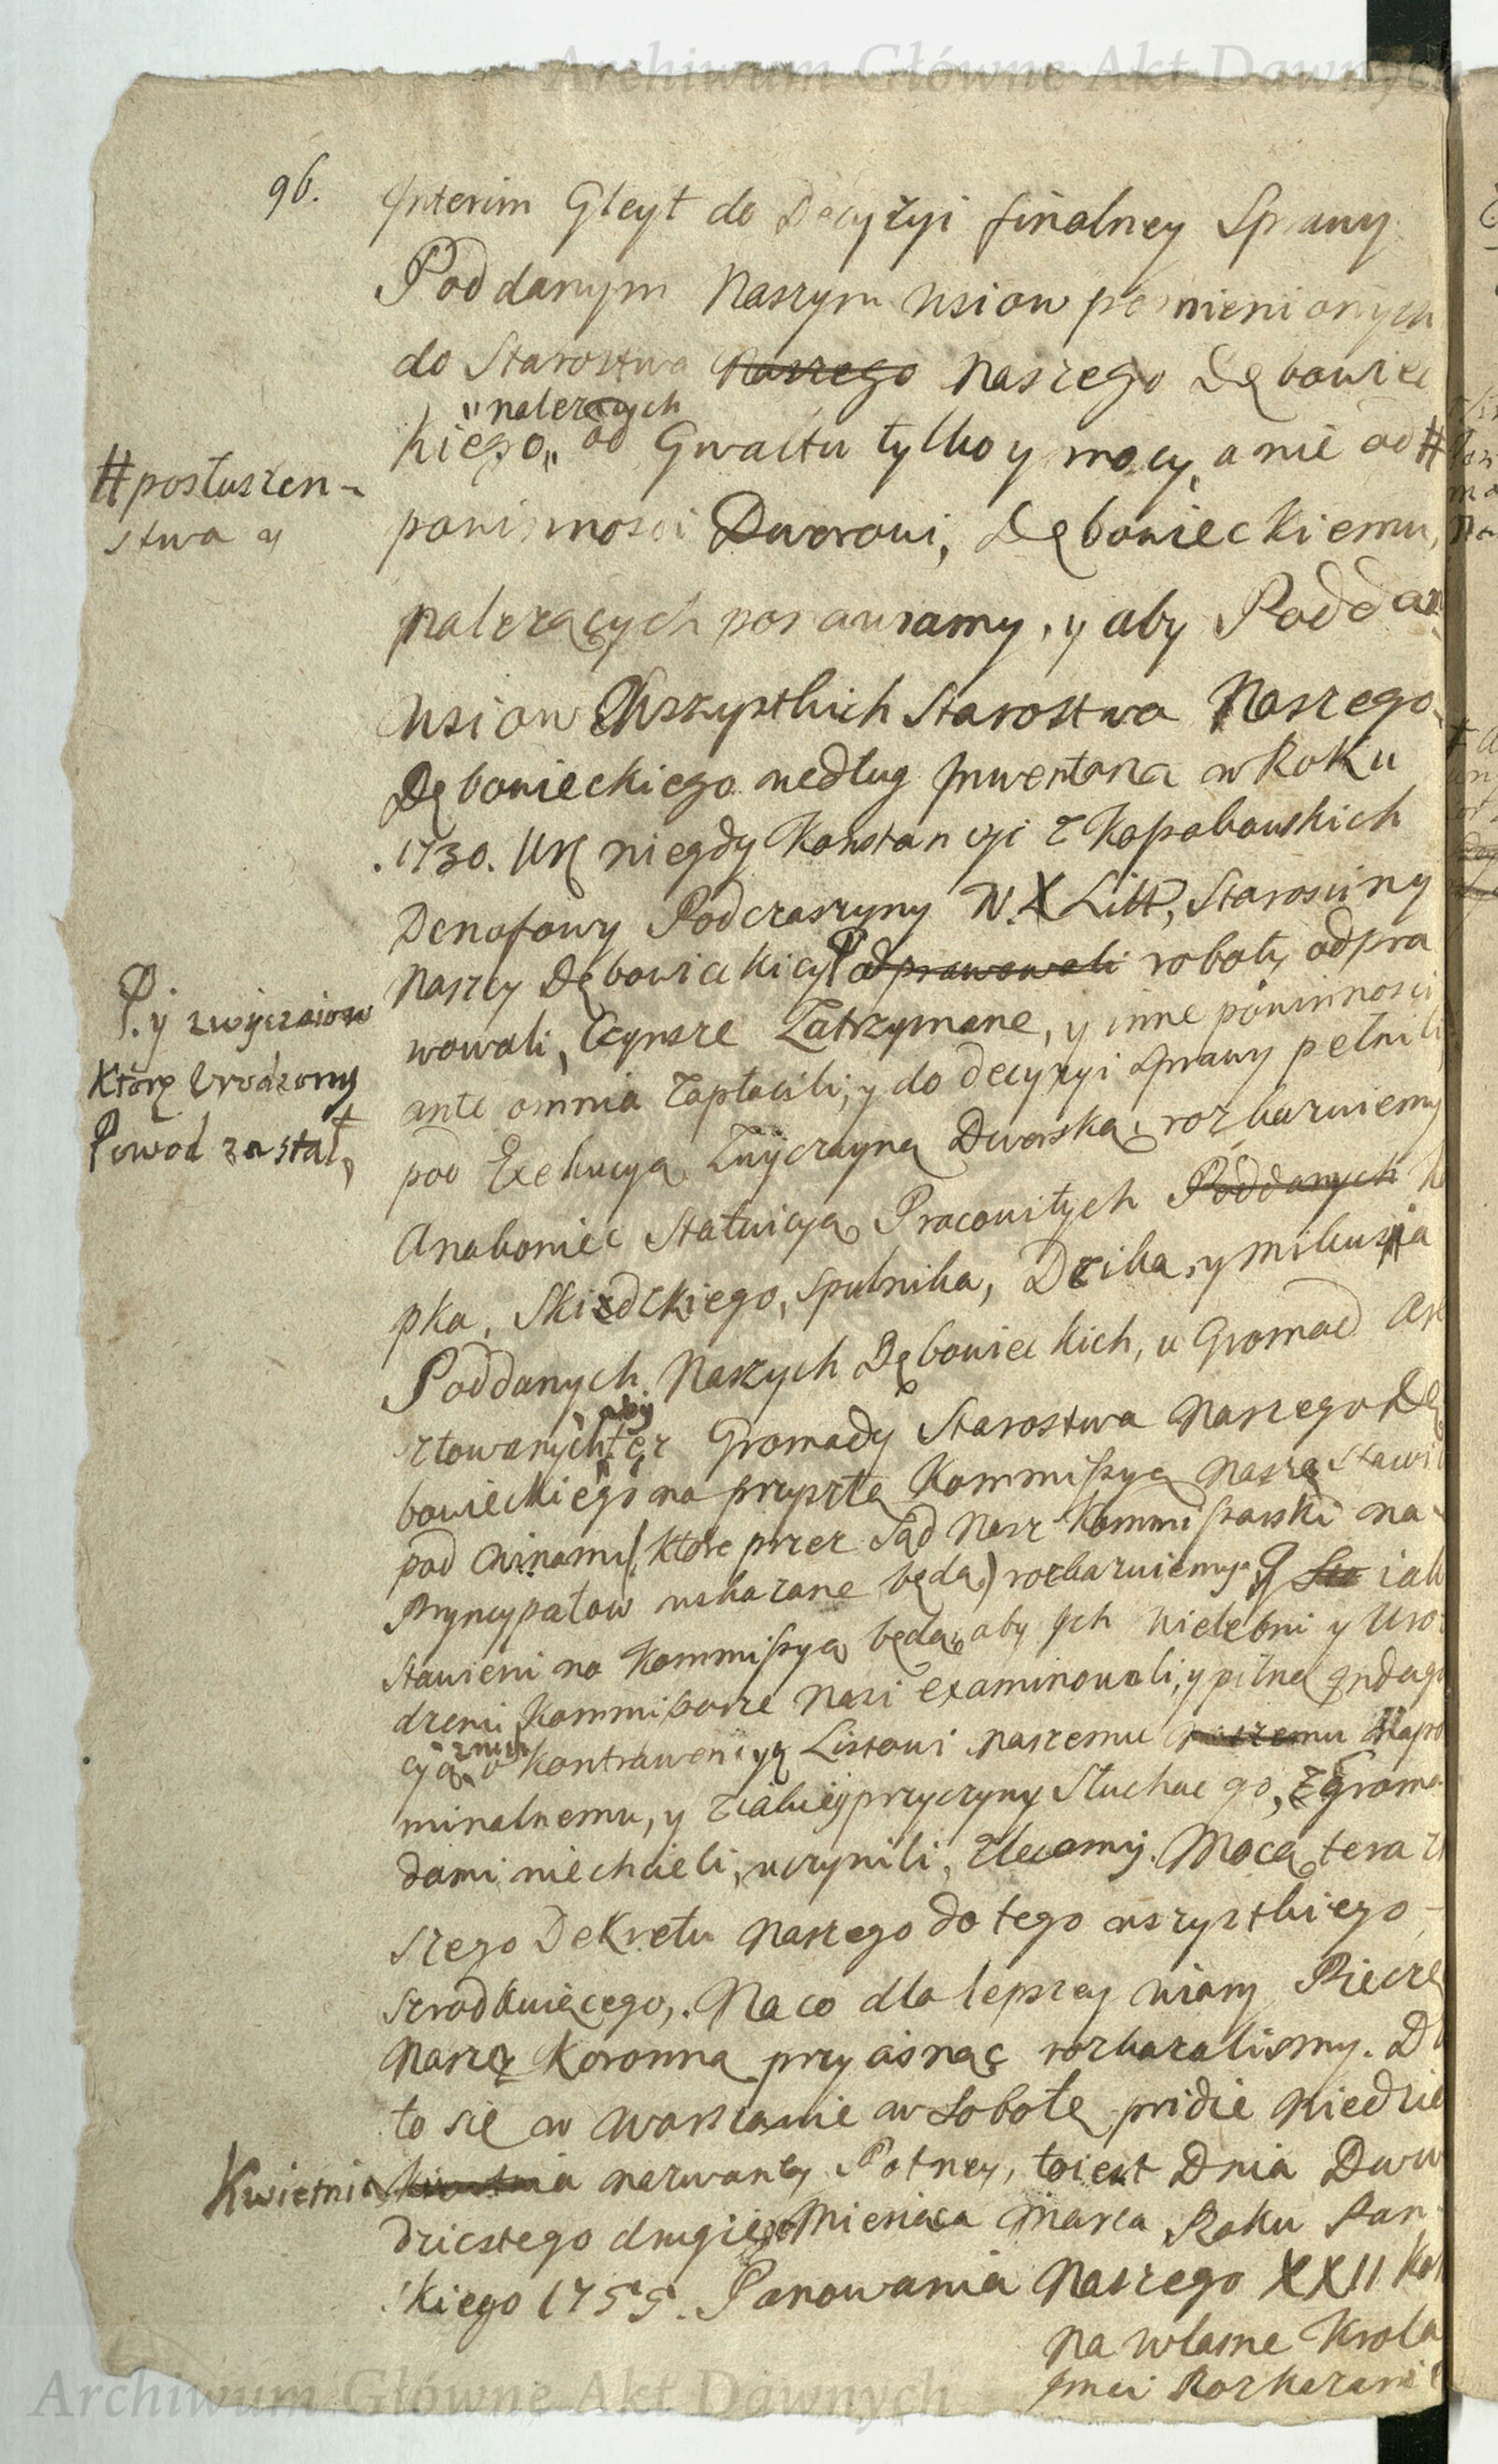 96.
Interim Gleyt do Decyzyi finalney Sprawy
Poddanym Naszym Wsiow pomienionych
do Starostwa Naszego Naszego Dębowiec
należących
kiego,, od Gwałtu tylko y mocy, a nie od #
# posłuszen-
stwa y
powinnosci Dworowi, Dębowieckiemu,
należących pozwalamy, y aby Poddani
Wsiow Wszystkich Starostwa Naszego
Dębowieckiego według Inwentarza w Roku
.1730. Ur niegdy Konstancyi z Kopabowskich
Denofowy Podczaszyny W. X Litt, Starosciny
Naszey Dębowieckiey P odprawowali roboty odpra
P. y zwyczaiow
Którę Urodzony
Powod zastał,
wowali, Czynsze Zatrzymane, y inne powinnosci
ante omnia zapłacili, y do decyzyi sprawy pełnili
pod Exekucyą Zwyczayną Dworską, rozkazuiemy
Anakoniec Statuicyą Pracowitych Poddanych
pka, Skizdckiego, Spulnika, Dzika, y Mikusia
Poddanych Naszych Dębowieckich, u Gromad
aby
sztowanych też Gromady Starostwa Naszego Dę
bowieckiego na przyszłą Kommissyą Naszą Stawili
pod Winami (które przez Sąd Nasz Kommissarski na
Pryncypałow wskazane będą) rozkazuiemy. A iak
Stawieni na Kommissyą będą, aby Ich Wielebni y Uro
dzeni Kommissarze Nasi examinowali, y pilną Indaga
z nich
cyą o kontrawencyą Listowi naszemu naszemu Napo
minalnemu, y z iakiey przyczyny Słuchac go, z Groma
dami niechcieli, uczynili, Zlecamy. Mocą tera
szego Dekretu Naszego do tego wszystkiego
szrodkuiącego,. Na co dla lepszey wiary Pieczę
Naszą Koronną przycisnąc rozkazalismy. D
to się w Warszawie w Sobotę pridie Niedzie
Kwietnia kwietnia nazwaney Potney, to iest Dnia Dwu
dziestego drugiego Miesiąca Marca Roku Pan
skiego 1755. Panowania Naszego XXII
Na własne Krola
Jmci Rozkazanie